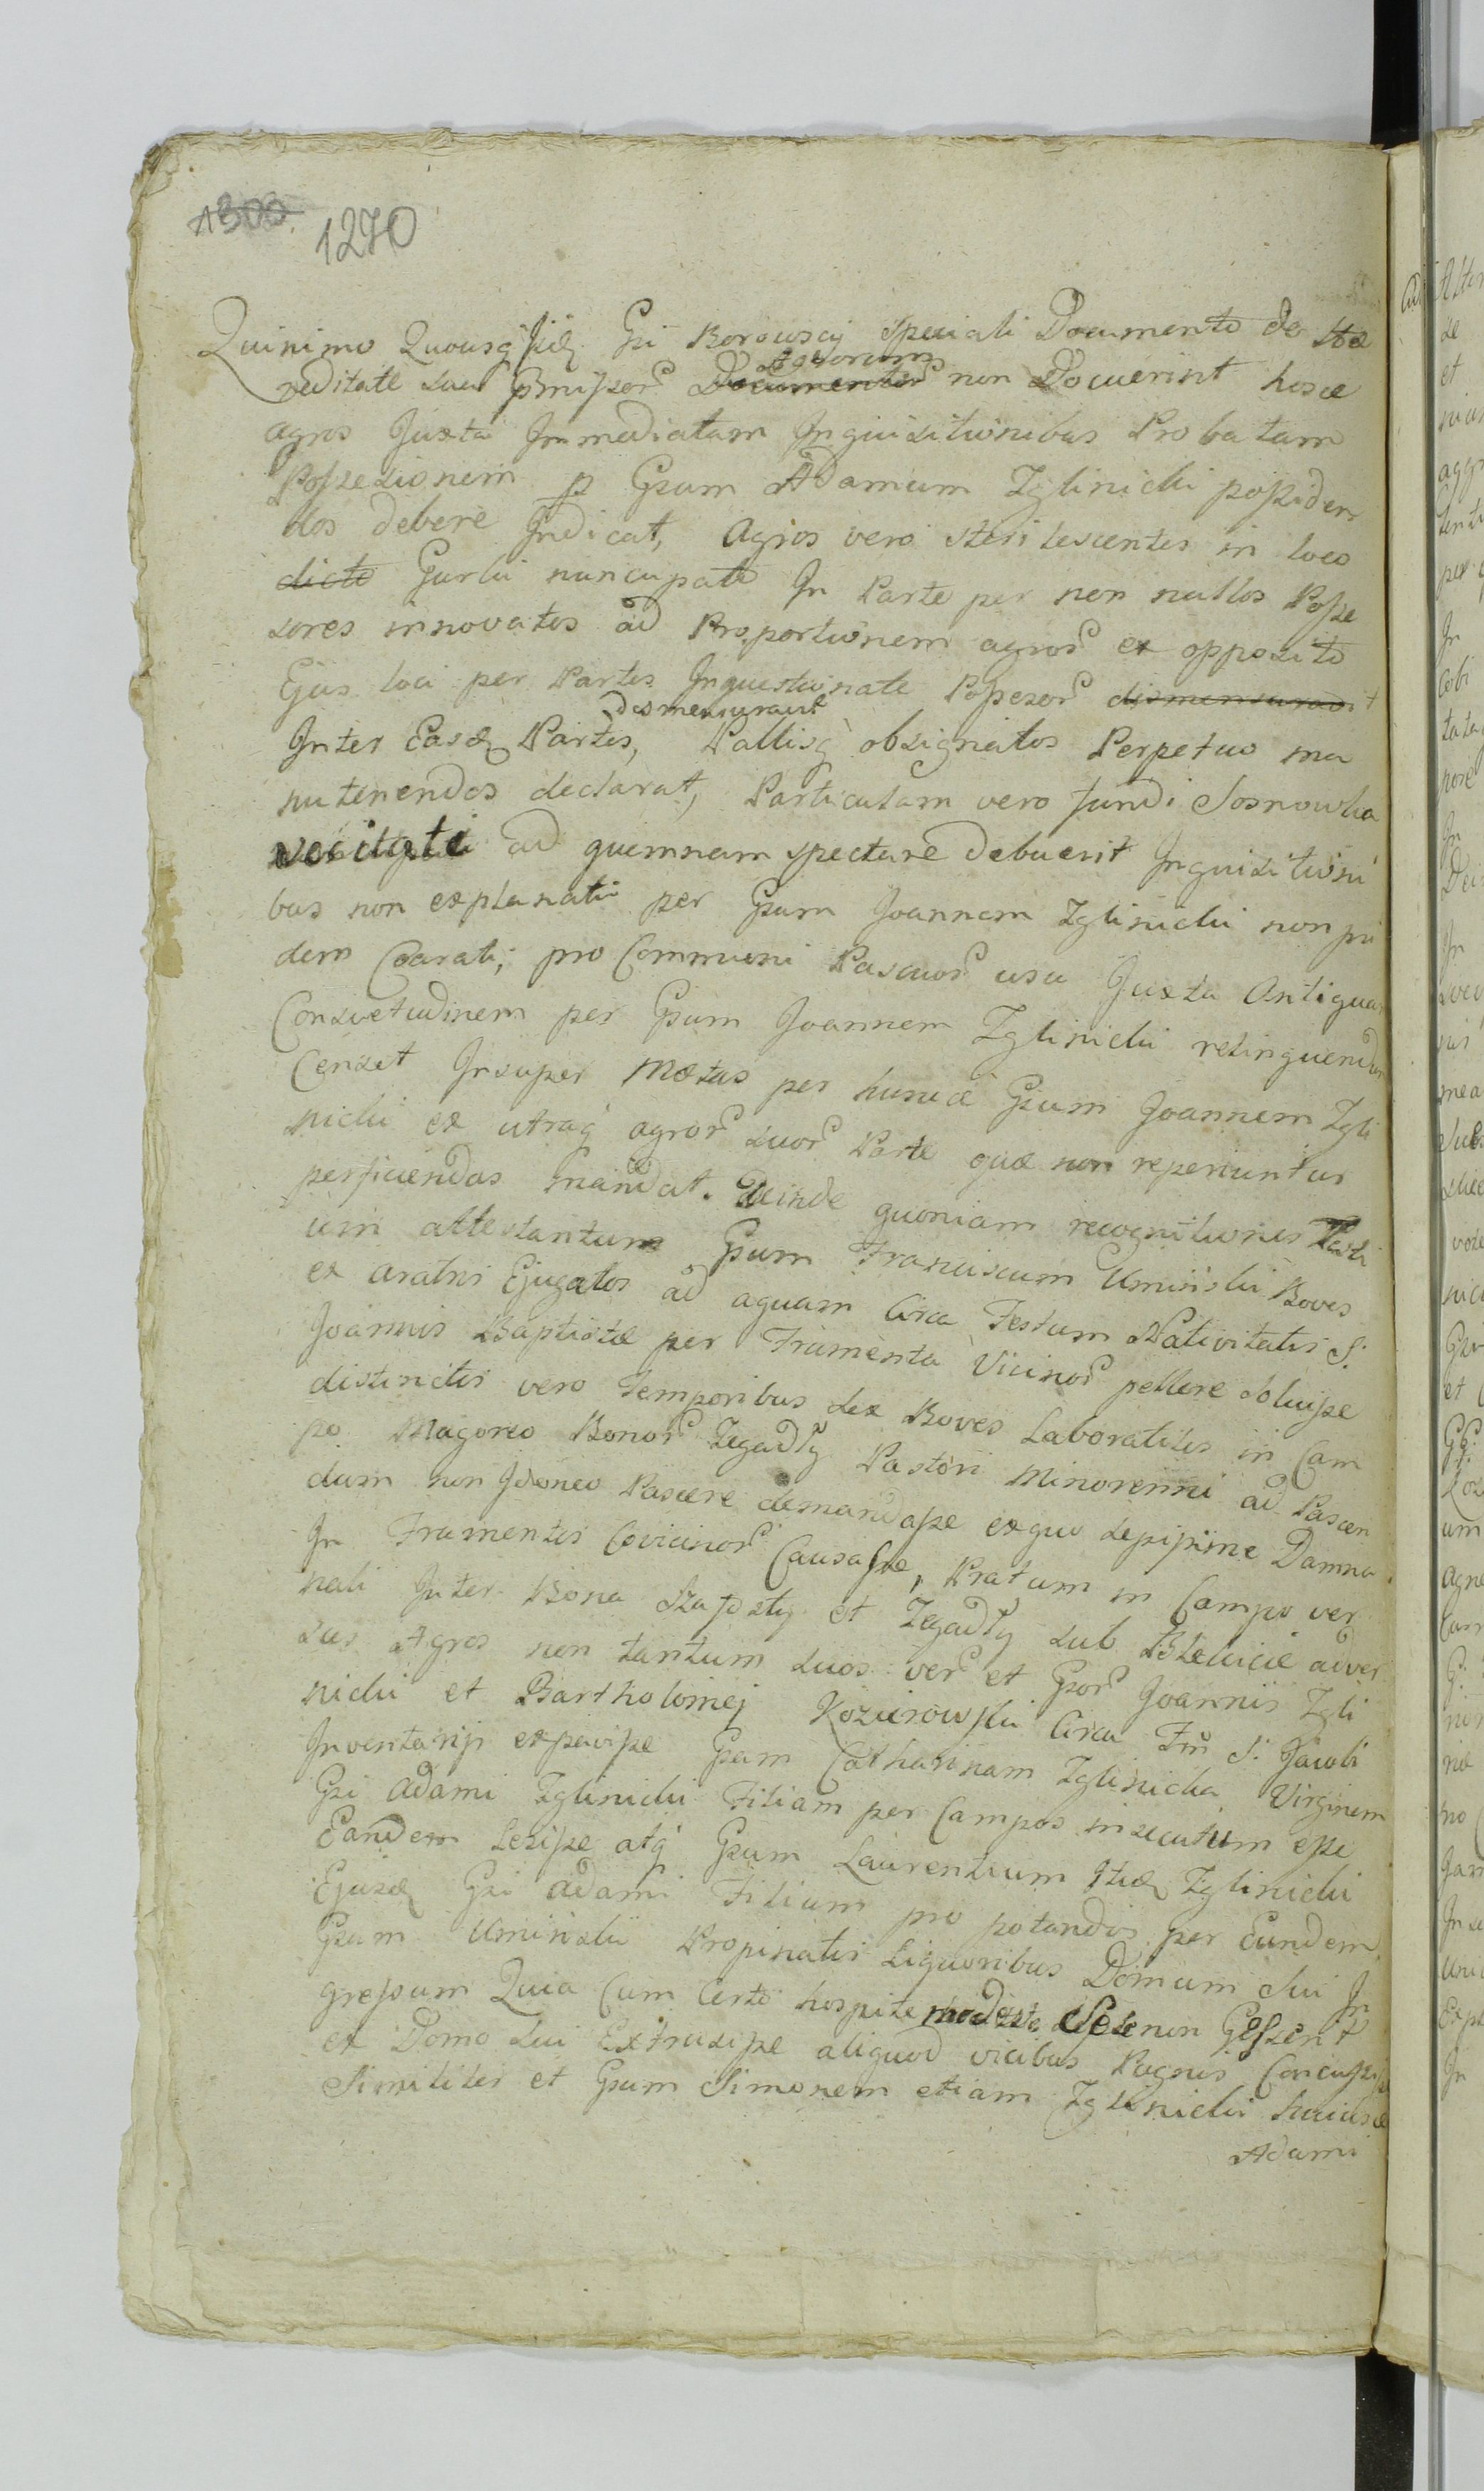 1300. 1270
Quinimo Quousq Iidẽ Gñi Borowscy speciali Documento de Hæ
reditate sua præmissor Agrorum Documentor non Docuerint hosce
agros Juxta Immediatam Inquisitionibus Probatam
Possessionem p Gsum Adamum Zglinicki possiden
dos debere Judicat, Agros vero sterilescentes in loco
dicto Gurki nuncupato In Parte per non nullos Posse
sores innovatos ad Proportionem agror ex opposito
Ejus loci per Partes Inquestionate Possessor dismensuravit
dismensuravit
Inter Easdẽ Partes, Pallisq obsignatos Perpetuo ma
nutenendos declarat, Particulam vero fundi Sosnowka
vocitati ad quemnam spectare debuerit Inquisitioni
bus non explanati per Gsum Joannem Zglinicki non pri
dem Coarati, pro Communi Pascuor usu Juxta Antiqua
Consvetudinem per Gsum Joannem Zglinicki relinquendam
Censet Insuper Metas per huncce Gsum Joannem Zgli
nicki ex utraq agror suor Parte quæ non reperiuntur
perficiendas mandat. Deinde quoniam recognitiones Testi
um attestantum Gsum Franciscum Uminski Boves
ex aratris Ejugatos ad aquam Circa Festum Nativitatis S.
Joannis Baptistæ per Frumenta Vicinor pellere soluisse
distinctis vero temporibus sex Boves Laboratites in Cam
po Magoreo Bonor Zegadły Pastori Minorenni ad Pascen
dum non Idoneo Pascere demandasse exquo sepissime Damna
In Frumentis Covicinor Causasse, Pratum in Campo ver
nali Inter Bona Szapsty et Zegadły sub Btenicie adver
sus Agros non tantum suos ver et Gsor Joannis Zgli
nicki et Bartholomej Kozierowski Circa Fm S. Jacobi
Inventarijs expavisse Gsam Catharinam Zglinicka Virginem
Gsi Adami Zglinicki Filiam per Campos insecutum esse
Eandem Lesisse atq Gsum Laurentium Itidẽ Zglinicki
Ejusdẽ Gsi Adami Filium pro potandis per Eundem
Gsum Uminski Propinatis Liquoribus Domum Sui In
gressum Quia Cum Certo hospite modeste Sese non Gesserit
ex Domo sui Extrusisse aliquod vicibus Pugnis Concussisse
Similiter et Gsum Simonem etiam Zglinicki huiusce
Adami